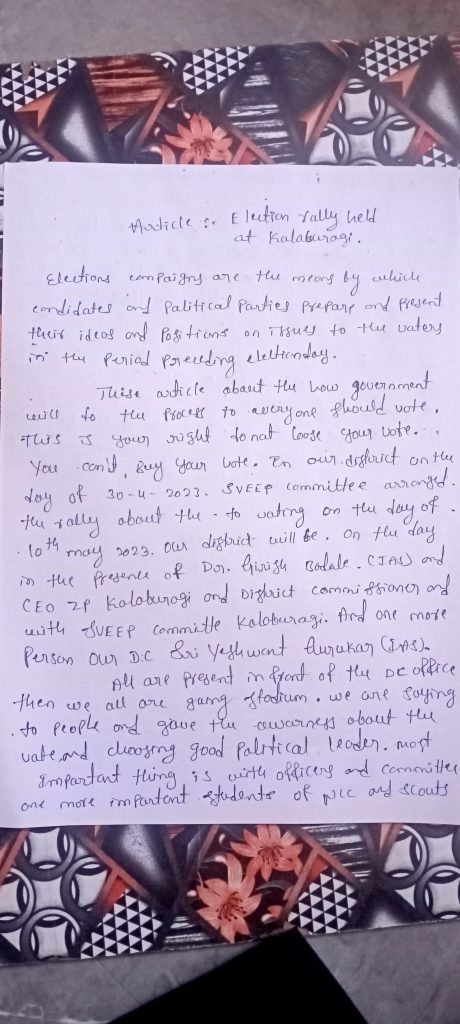 Article :- Election rally held
at Kalaburagi.
Elections campaigns are the means by which
candidates and Palitical Parties Prepare and Present
their ideas and Positions on Issues to the vaters
in the Period Preceding electionday.
These article about the how government
will do the Process to everyone should vote.
This is your right do not loose your vote.
You can't, Buy your vote. In our district on the
day of 30-4-2023. SVEEP committee arranged.
the rally about the - to vating on the day of.
10th may 2023. Our district will be. on the day
in the Presence of Dr. Girish Badole. (IAS) and
CEO ZP Kalaburagi and District commissioner and
with SVEEP committe Kalaburagi. And one more
Person our D.C Sri Yeshwant Gurukar (IAS).
All are Present in front of the DC office
then we all are gaing stadium. we are saying
to people and gave the awarness about the
vate, and choosing good Palitical leader. most
Important thing is with officers and committee
one more important students of NCC and scouts